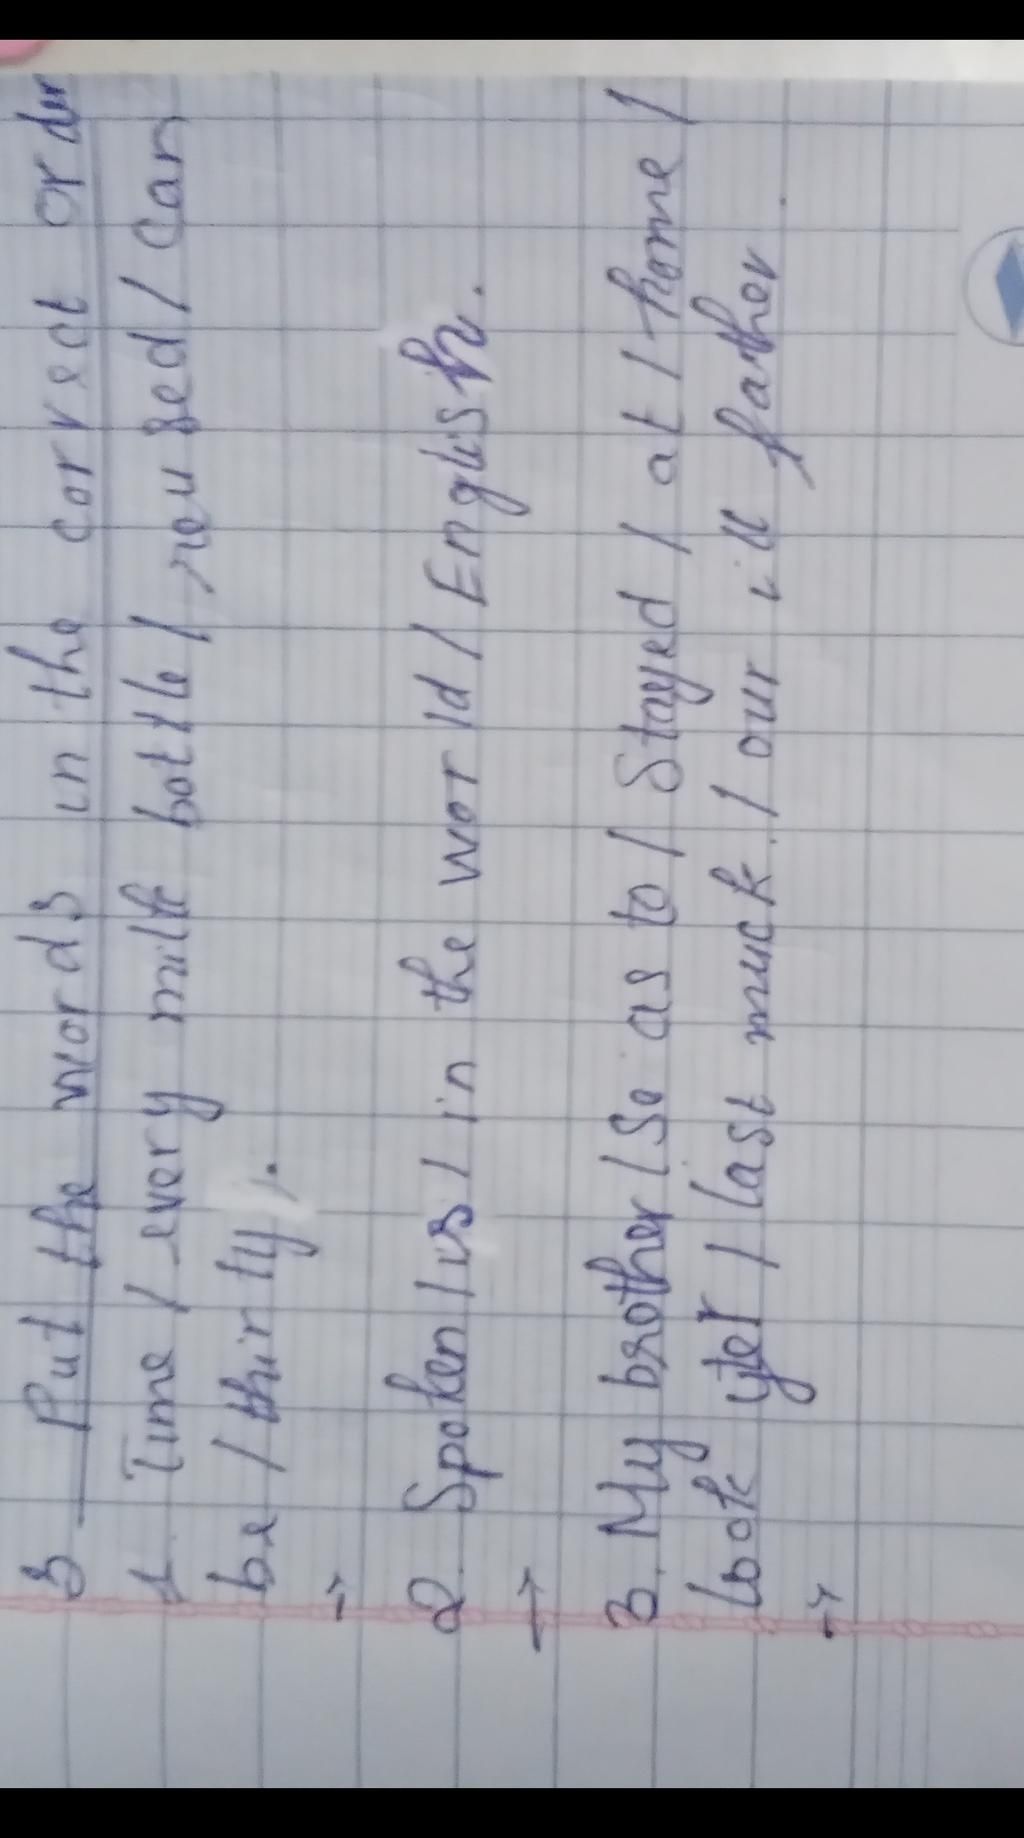 3 Put the words in the correct order
1. Time / every milk bottle / reused / can
be / thirty.
→
2. Spoken / is / in the world / English.
→
3. My brother / so as to / stayed / at / home /
look yter / last muck. / our ill father.
→